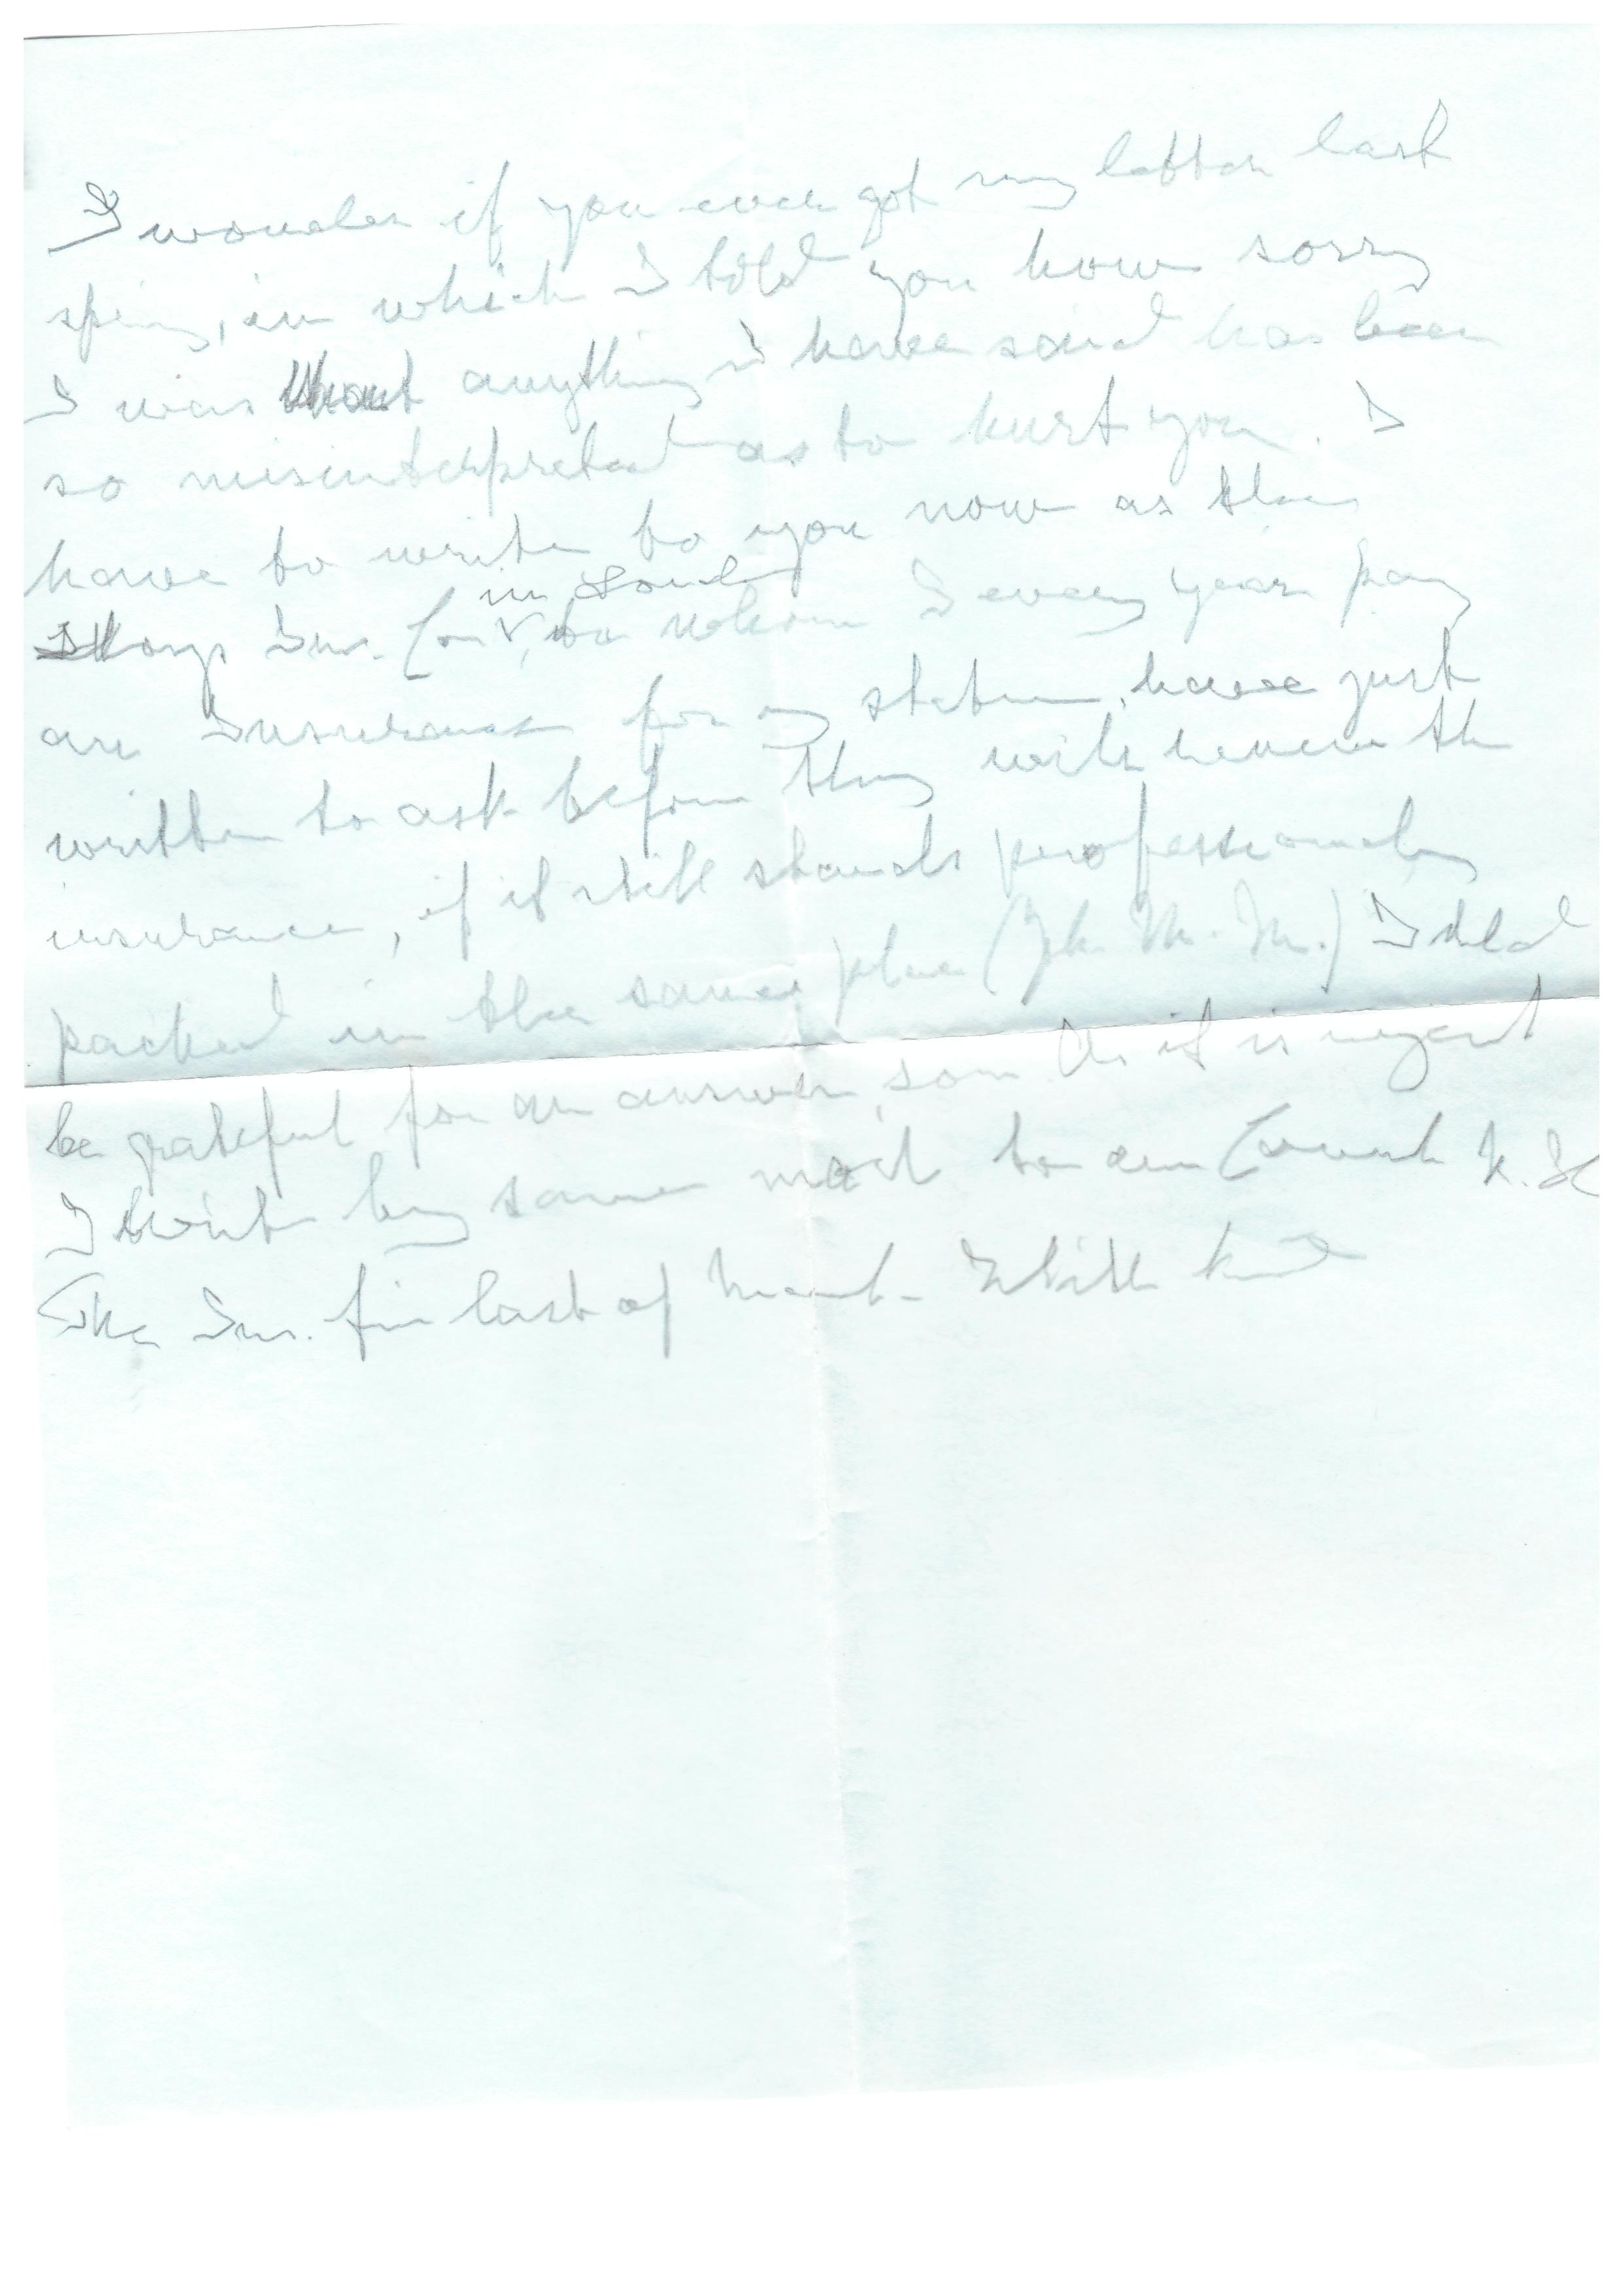 I wonder if you ever got my letter last
spring, in which I told you how sorry
I was that anything I have said has been
so misinterpreted as to hurt you. I
have to write to you now as the
in London
Ins. Co, to whom I every year pay
an Insurance for my statue, have just
written to ask before they will renew the
insurance, if it still stands professionally
packed in the same place (M. M.) I
be grateful for an answer, soon. As it is urgent
I write by same mail to
The Ins. fin last of With kind